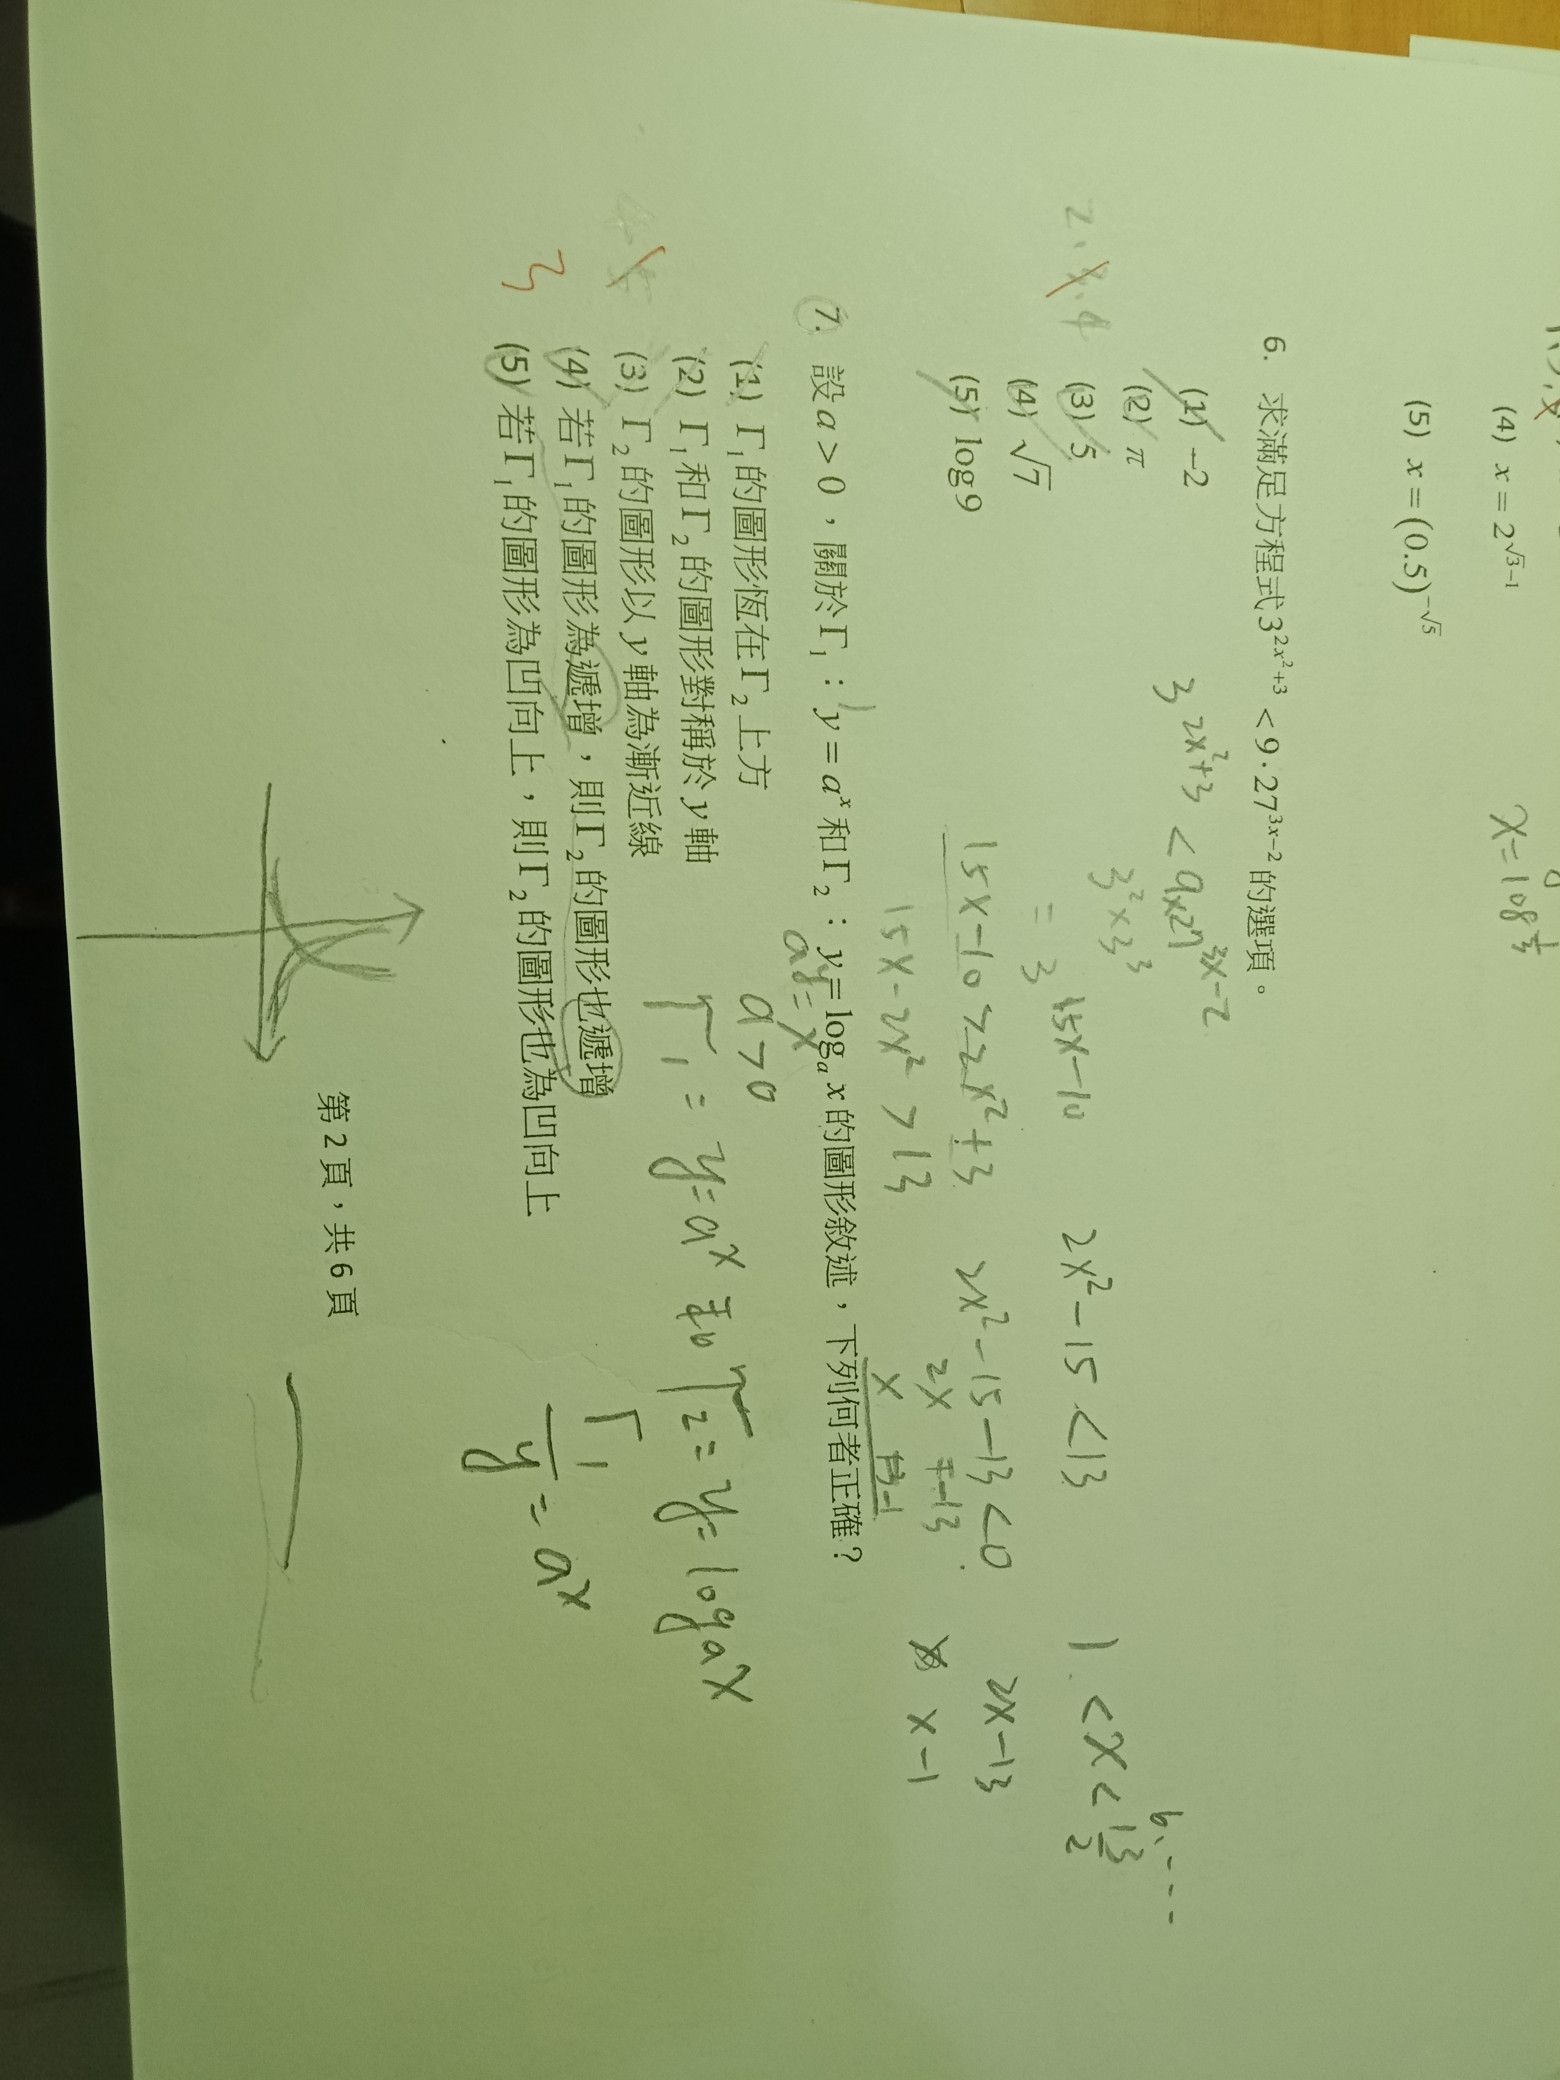 (4) x = 2^{√3-1}
x = log 1/3
(5) x = (0.5)^{-√5}
6. 求滿足方程式 3^{2x²+3} < 9·27^{3x-2} 的選項。
(1) -2
(2) π
(3) 5
(4) √7
(5) log9
3^{2x²+3} < 9×27^{3x-2}
3²×3³
= 3^{15x-10}
15x-10 > 2x²+3
15x-2x² > 13
2x²-15 < 13
2x²-15-13 < 0
2x -13
x -1
1 < x < 13/2
2x-13
x-1
7. 設 a > 0，關於 Γ₁ : y = a^x 和 Γ₂ : y = log_a x 的圖形敘述，下列何者正確？
a^y = x
(1) Γ₁ 的圖形恆在 Γ₂ 上方
(2) Γ₁ 和 Γ₂ 的圖形對稱於 y 軸
(3) Γ₂ 的圖形以 y 軸為漸近線
(4) 若 Γ₁ 的圖形為遞增，則 Γ₂ 的圖形也遞增
(5) 若 Γ₁ 的圖形為凹向上，則 Γ₂ 的圖形也為凹向上
a > 0
Γ₁ = y = a^x 和 Γ₂ = y = log_a x
Γ₁
y = a^x
3
第 2 頁，共 6 頁